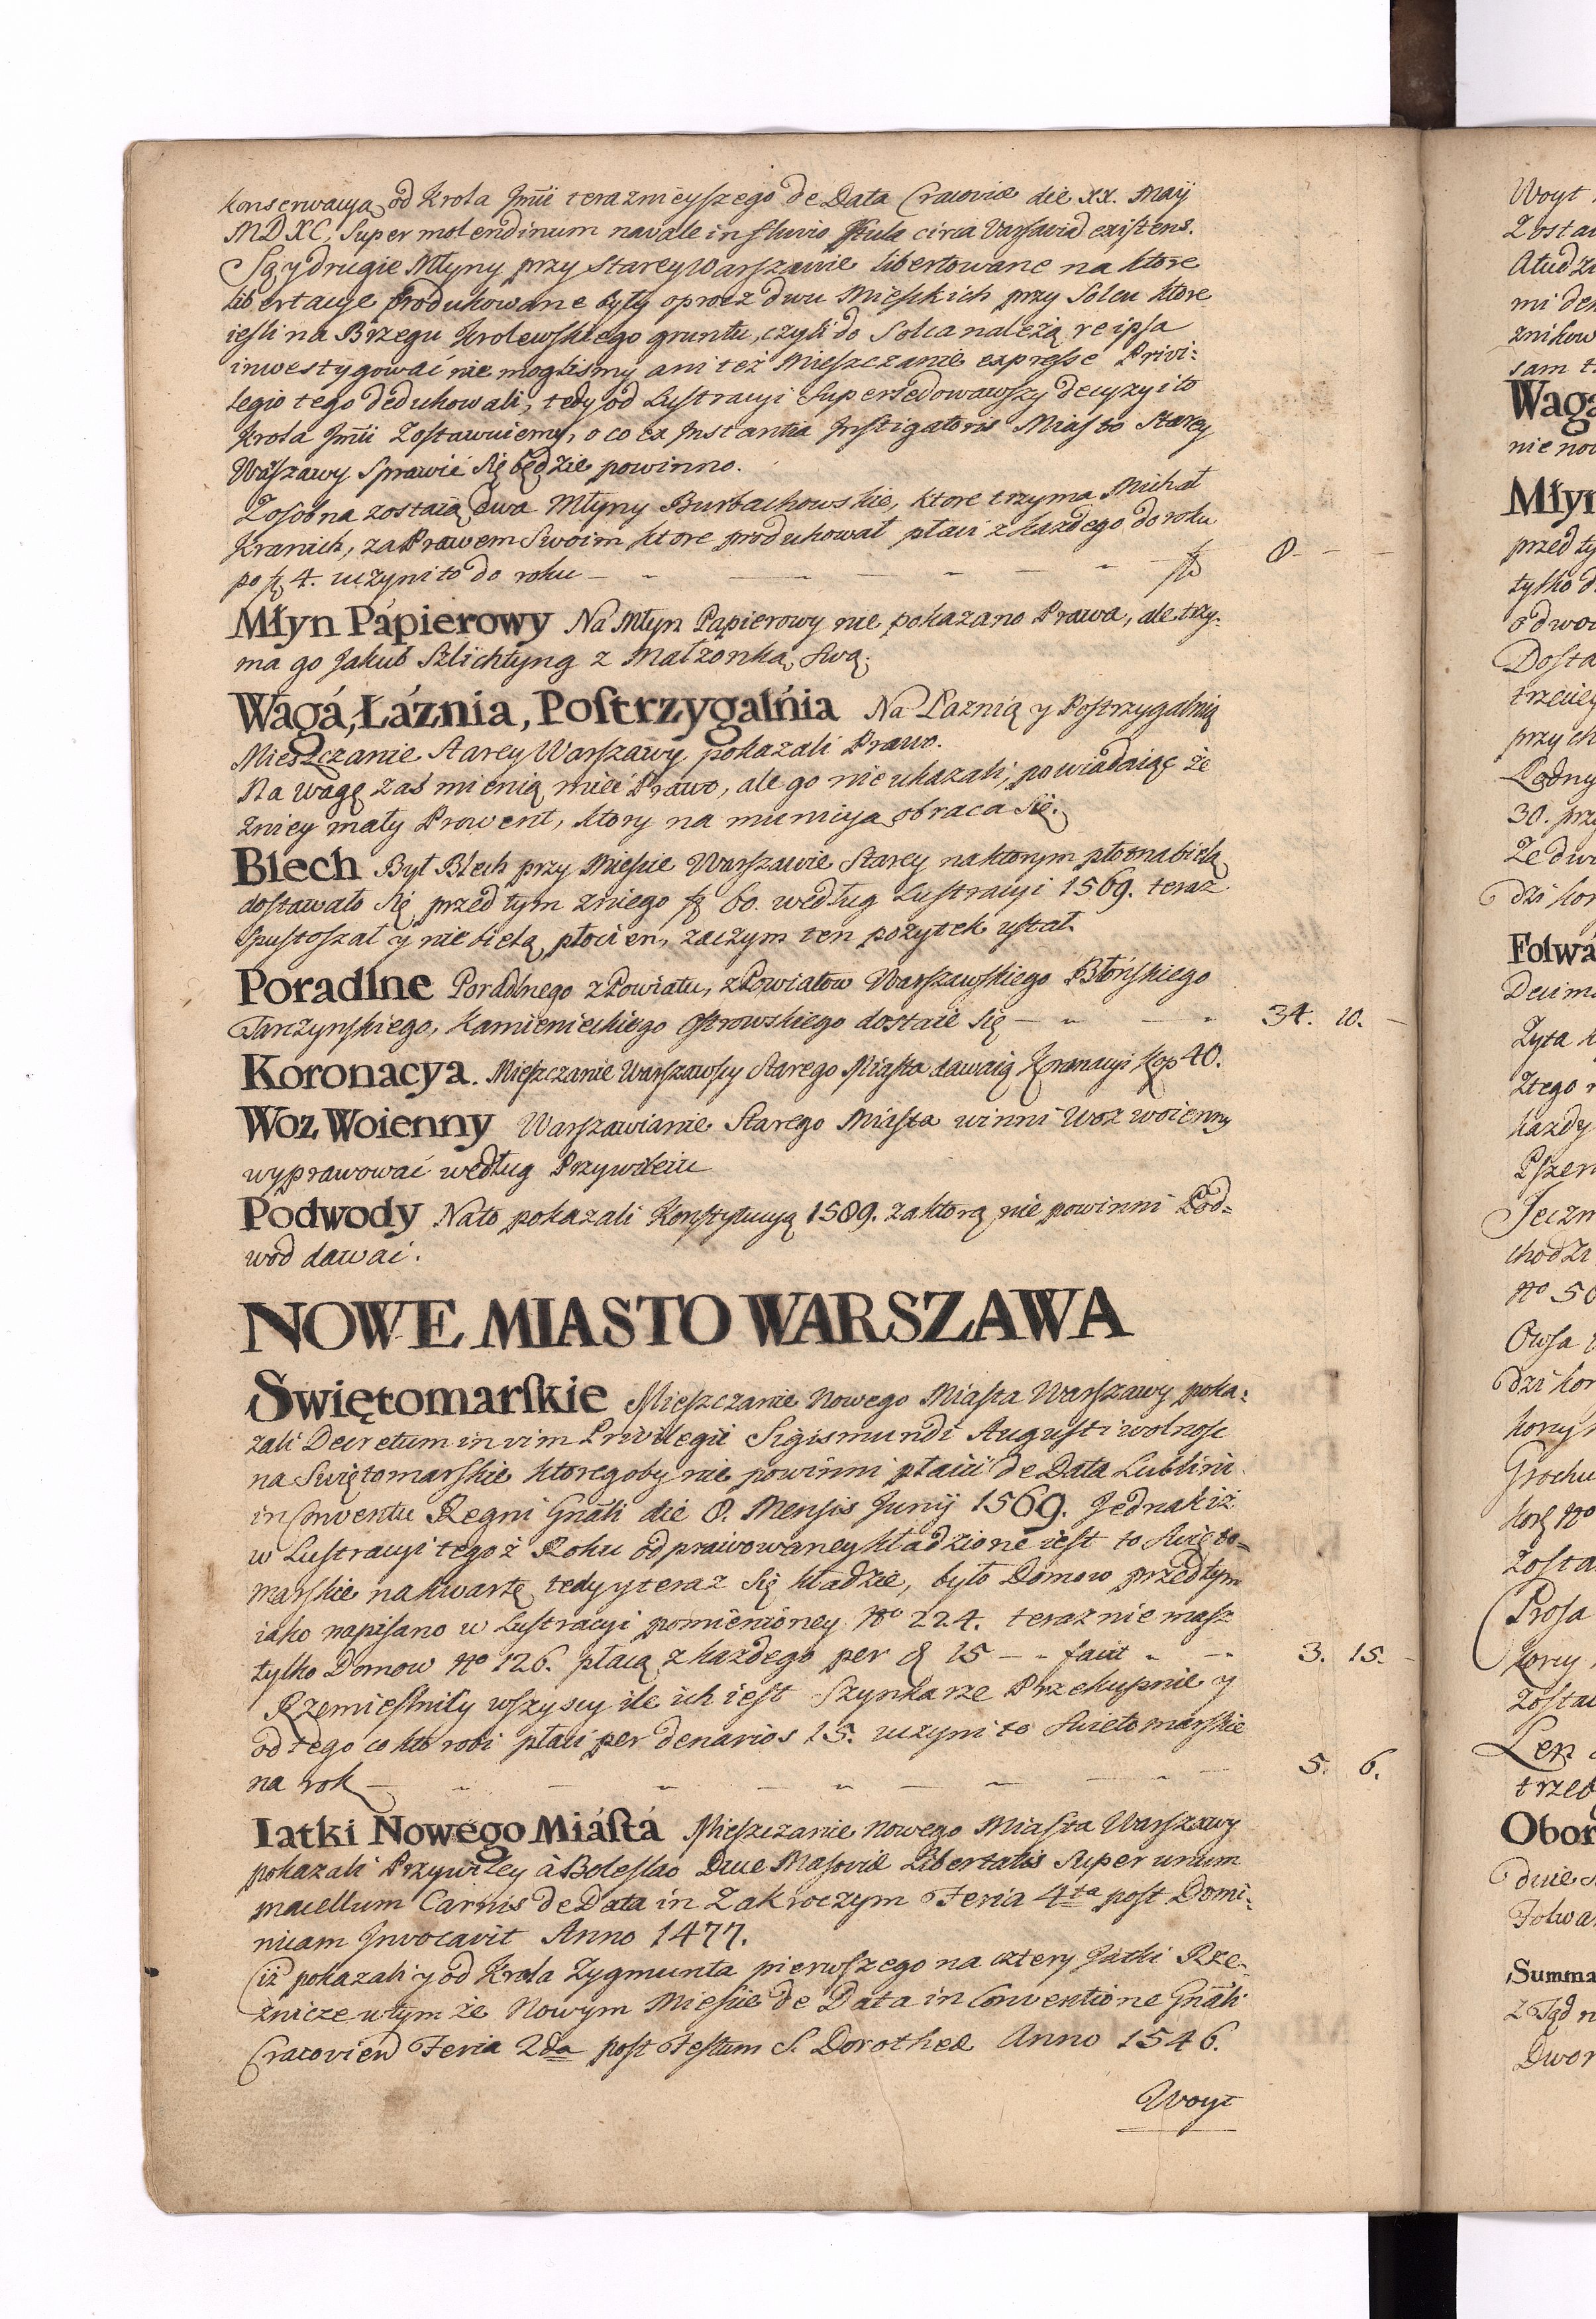 konserwacyą od Krola Jmći terazniejszego de Data Cracoviæ die XX. Maÿ
MDXC. Super molendinum navale in fluvio circa Varsaviā existens.
Są y drugie Młyny przy Starey Warszawie libertowane na ktore
libertacye produkowane były oprocz dwu Mieskich przy Solcu ktore
iesli na Brzegu Krolewskiego gruntu, czyli do Solca należą re ipsa
inwestygować nie moglismy ani też Mieszczanie expresse Privi:
legio tego dedukowali, tedy od Lustracyi Supersedowawszy decyzyi to
Krola Jmći Zostawuiemy, o co ex Instantia Instigatoris Miasto Starey
Warszawy Sprawić Się będzie powinno.
Zosobna zostaią dwa Młyny Burbachowskie, ktore trzyma Michał
Kranich, za Prawem Swoim ktore produkował płaci z każdego do roku
po f 4. uczyni to do roku — — — f 8 — —
Młyn Papierowy Na Młyn Papierowy nie pokazano Prawa, ale trzy:
ma go Jakub Szlichtyng z Małżonką Swą.
Wagá, Łáznia, Postrzygalńia Na Łaznią y Postrzygalnią
Mieszczanie Starey Warszawy pokazali Prawo.
Na wagę zaś mienią mieć Prawo, ale go nie ukazali, powiadaiąc że
zniey mały Prowent, ktory na municyą obraca Się.
Blech Był Blech przy Miescie Warszawie Starey na ktorym płotna bielą
dostawało Się przed tym zniego f 60. według Lustracyi 1569. teraz
Spustoszał y nie bielą płocien, zaczym ten pożytek ustał.
Poradlne Poradlnego z Powiatu, z Powiatow Warszawskiego Błońskiego
Tarczynskiego, Kamienieckiego Ostrowskiego dostaie Się — — 34. 10. —
Koronacya. Mieszczanie Warszawscy Starego Miasta dawaią Koronacyi kop 40.
Woz Woienny Warszawianie Starego Miasta winni Woz woienny
wyprawować według Przywileiu
Podwody Na to pokazali Konstytucyą 1589. za ktorą nie powinni Pod=
wod dawać.
NOWE MIASTO WARSZAWA
Swiętomarskie Mieszczanie Nowego Miasta Warszawy poka:
zali Decretum in vim Privilegii Sigismundi Augusti wolnosc
na Swiętomarskie ktoregoby nie powinni płacić de Data Lublini
in Conventu Regni Gnāli die 8. Mensis Junÿ 1569. Jednak iż
w Lustracyi tegoż Roku odprawowaney kładzione iest to Swięto=
marskie na kwartę tedy y teraz Się kładzie, było Domow przedtym
iako napisano w Lustracyi pomienioney No 224. teraz nie masz
tylko Domow No 126. płacą z każdego per 15 — facit — 3. 15. —
Rzemieslnicy wszyscy ile ich iest Szynkarze Przekupnie y
od tego co kto robi płaci per denarios 15. uczyni to Swiętomarskie
na rok — — — 5. 6.
Iatki Nowego Miástá Mieszczanie Nowego Miasta Warszawy
pokazali Przywiley à Boleslao Duce Masoviæ Libertatis Super unum
macellum Carnis de Data in Zakroczym Feria 4ta post Domi:
nicam Invocavit Anno 1477.
Ciż pokazali y od Krola Zygmunta pierwszego na cztery Jatki Rze-
znicze w tym że Nowym Miescie de Data in Conventione Gnāli
Cracovien Feria 2da post Festum S. Dorotheæ Anno 1546.
Woyt